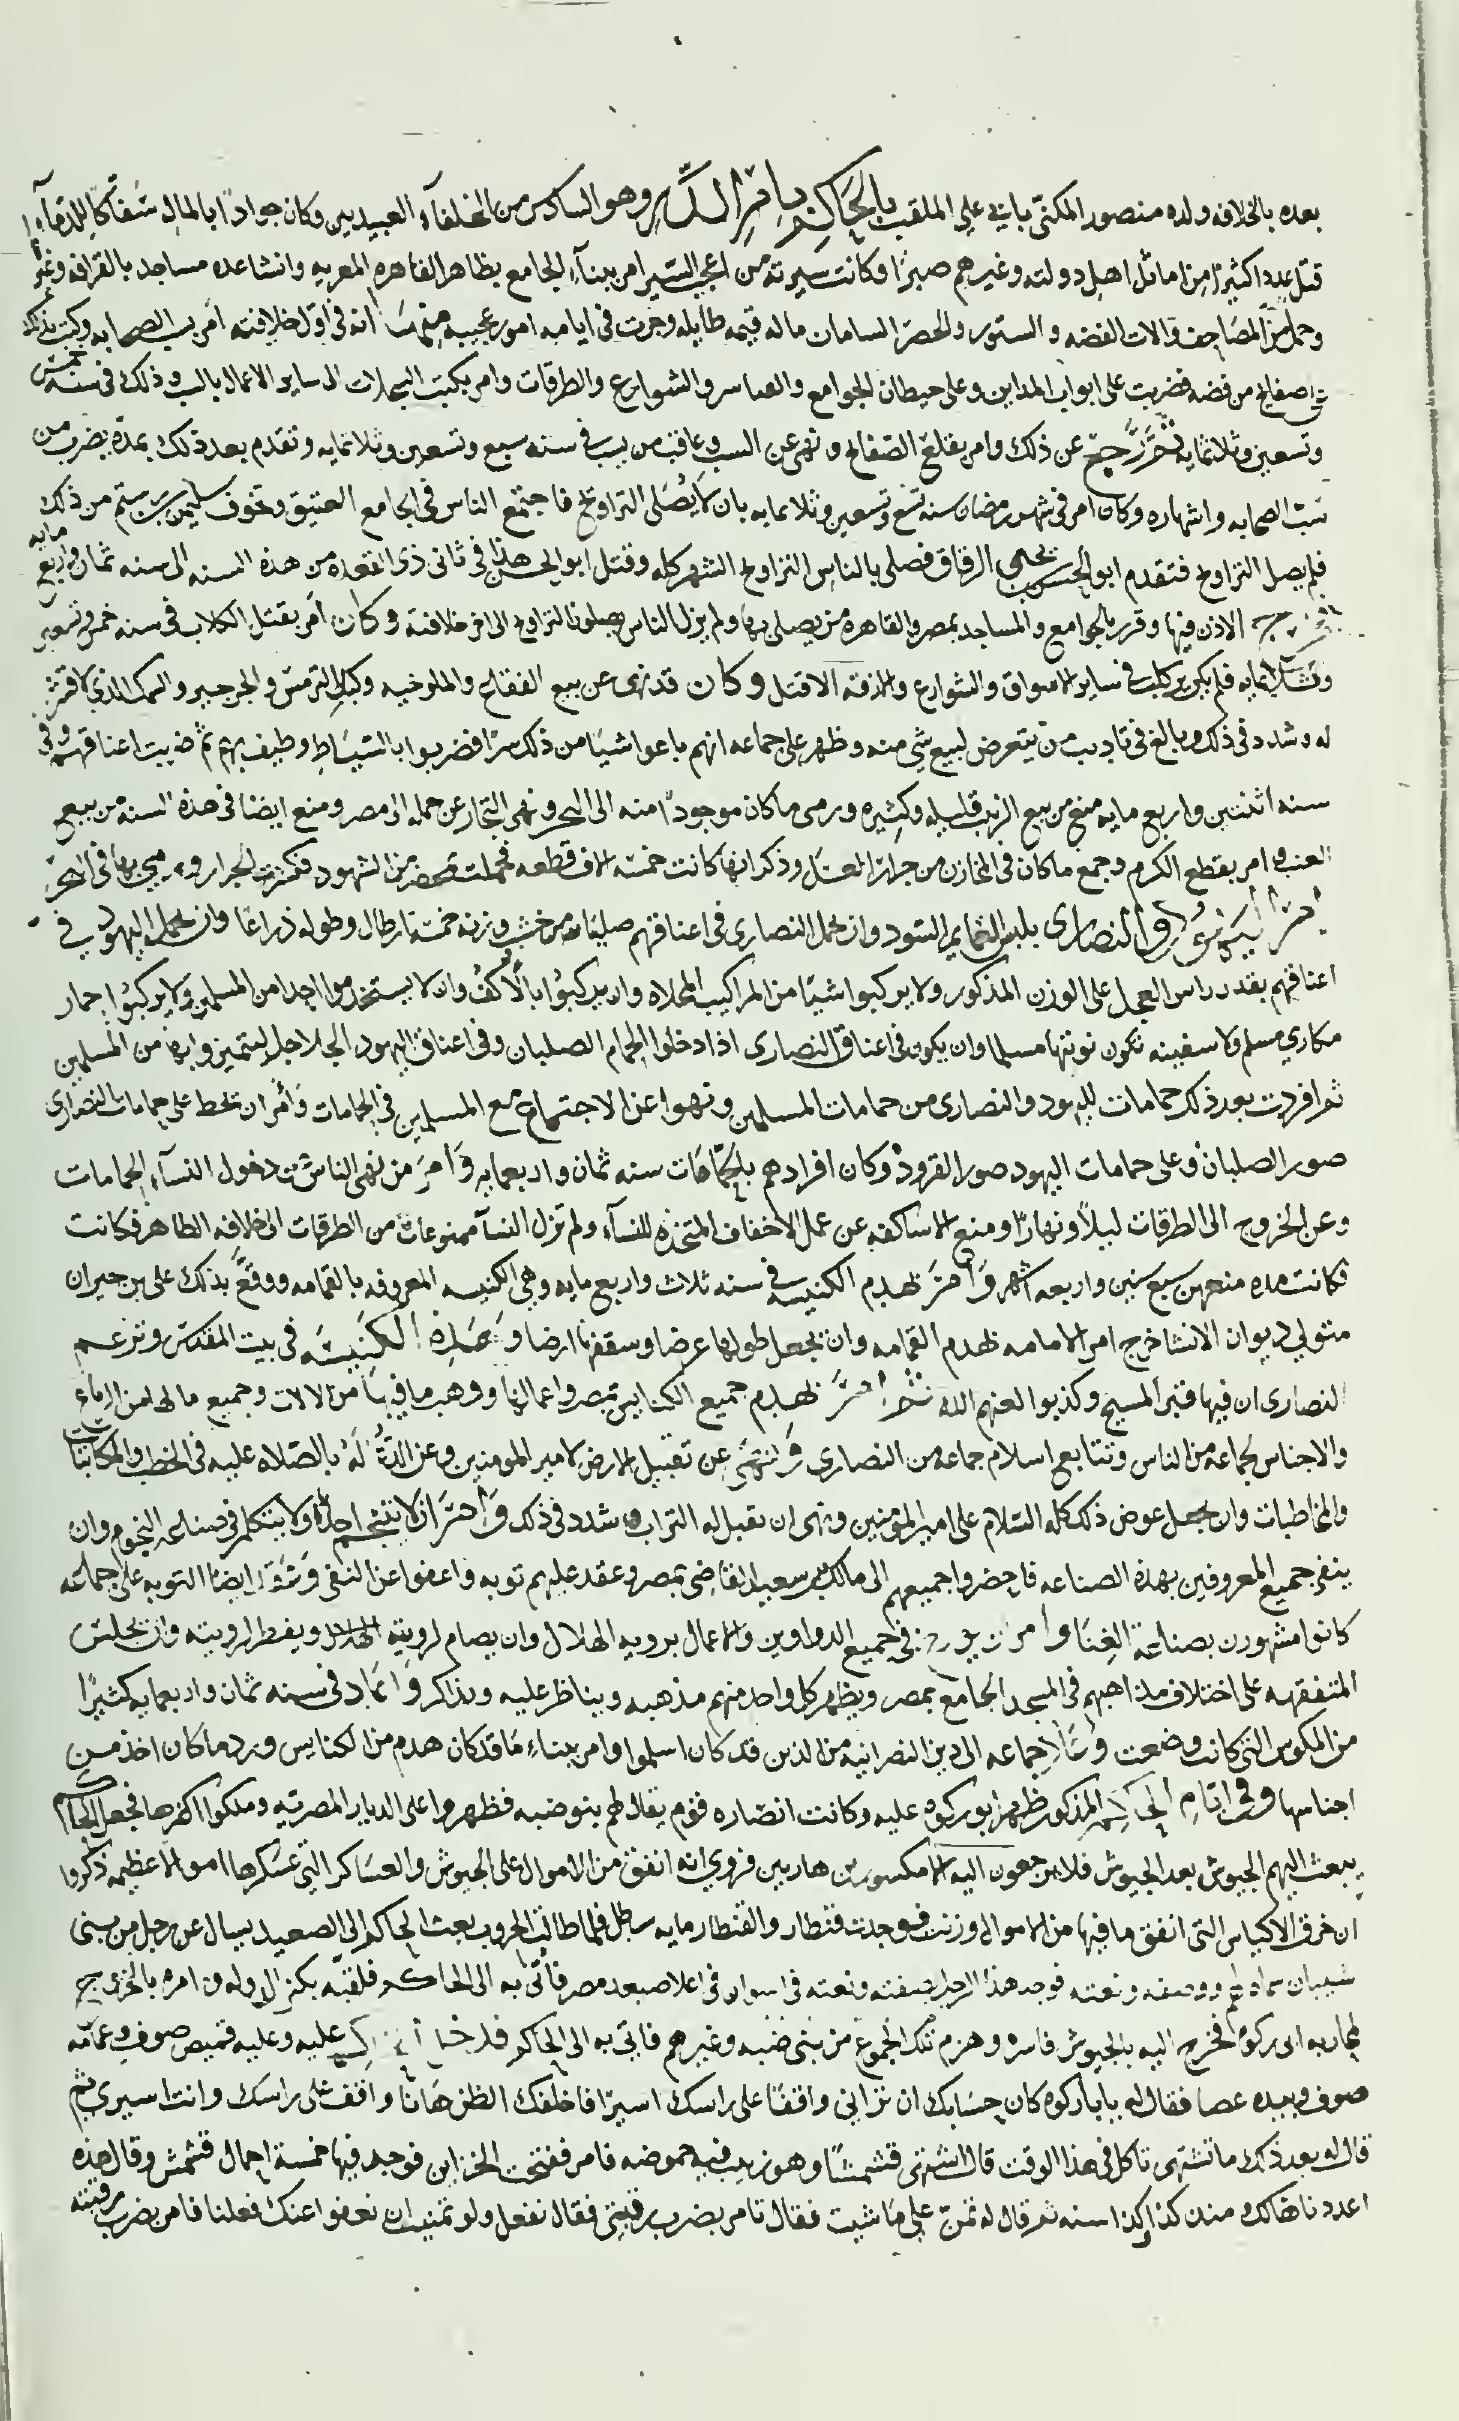 بعده بالخلافه ولده منصور المكنى بابي علي الملقب بالحاكم بامر الله وهو السادس من الخلفآء العبيديين وكان جوادًا بالمال سفاكًا للدمآء
قتل عددا كثيرًا من اماثل اهل دولته وغيرهم صبرًا وكانت سيرته من اعجب السير امر ببنآء الجامع بظاهر القاهره المعزيه وانشا عده مساجد بالقرافه وغيره
وحمل من المصاحف والات الفضه و الستور والحصر السامان ما له قيمه طايله وجرت في ايامه امور عجيبه منها انه في اول خلافته امر بسب الصحابه وكتب بذلك
صفايح من فضه فضربت على ابواب المداين وعلى حيطان الجوامع والعياسر والشوارع والطرقات وامر بكتب السجلات الى ساير الاعمال بالسب وذلك في سنه خمس
وتسعين وثلاثمايه ثم رجع عن ذلك وامر بقلع الصفايح ونهى عن السب وعاقب من يسب في سنه سبع وتسعين وثلاثمايه وتقدم بعد ذلك بمدّة بضرب من
سب الصحابه واشهاره وكان امر في شهر رمضان سنه تسع وتسعين وثلاثمايه بان لا يصلى التراويح فاجتمع الناس في الجامع العتيق وتخوف سليمن بن رستم من ذلك
فلم يصل التراويح فتقدم ابو الحسن يحيى الزقاق فصلى بالناس التراويح الشهر كله وقتل ابو الحسن هذا في ثاني ذي القعده من هذه السنه الى سنه ثمان واربع مايه
خرج الاذن فيها وقرر بالجوامع والمساجد بمصر والقاهره من يصلي بها ولم يزل الناس يصلون التراويح الى اخر خلافته وكان امر بقتل الكلاب في سنه خمس وتسعين
وثلاثمايه فلم يكن يرى كلب في ساير الاسواق والشوارع والازقه الا قتل وكان قد نهى عن بيع الفقاع والملوخيه وكبب الترمس والجرجير والسمك الذي لا قشر
له وشدد في ذلك وبالغ في تاديب من يتعرض لبيع شي منه وظهر على جماعه انهم باعوا شيا من ذلك سرًا فضربوا بالسياط وطيف بهم ثم ضربت اعناقهم وفي
سنه اثنتين واربع مايه منع من بيع الزبيب قليله وكثيره ورمى ما كان موجودًا منه الى البحر ونهى التجار عن حمله الى مصر ومنع ايضا في هذه السنه من بيع
العنب وامر بقطع الكرم وجمع ما كان في المخازن من جرار العسل وذكر انها كانت خمسة الاف قطعه فحملت بحضر من الشهود فكسرت الجرار ورمي بها في البحر
امر اليهود والنصارى بلبس العمايم السود وان تحمل النصارى في اعناقهم صلبانا من خشب وزنه خمسة ارطال وطوله ذراعًا وان تحمل اليهود في
اعناقهم بقدر راس العجل على الوزن المذكور ولا يركبوا شيًا من المراكب المحلاه وان يركبوا بالاكف وان لا يستخدموا احدا من المسلمين ولا يركبوا حمار
مكاري مسلم ولا سفينه تكون نوتيها مسلما وان يكون في اعناق النصارى اذا دخلوا الحمام الصلبان وفي اعناق اليهود الجلاجل ليتميزوا بها من المسلمين
ثم افردت بعد ذلك حمامات لليهود والنصارى من حمامات المسلمين ونهوا عن الاجتماع مع المسلمين في الحمامات وامر ان تحط على حمامات النصارى
صور الصلبان وعلى حمامات اليهود صور القرود وكان افرادهم بالحمامات سنه ثمان واربعمايه وامر من نهى الناس من دخول النسآء الحمامات
وعن الخروج الى الطرقات ليلًا ونهارًا ومنع الاساكفه عن عمل الاخفاف المتخذه للنسآء ولم تزل النسآ ممنوعات من الطرقات الى خلافه الظاهر فكانت
فكانت مده منعهن سبع سنين واربعه اشهر وامر بهدم الكنيسه في سنه ثلاث واربع مايه وهي الكنيسه المعروفه بالقمامه ووقع بذلك علي بن جيران
متولي ديوان الانشا خرج امر الامامه بهدم القمامه وان تجعل طولها عرضا وسقفها ارضا وهذه الكنيسه في بيت المقدس وتزعم
النصارى ان فيها قبر المسيح وكذبوا لعنهم الله ثم امر بهدم جميع الكنايس بمصر واعمالها ووهب ما فيها من الالات وجميع مالها من الرباع
والاجناس لجماعه من الناس وتتابع اسلام جماعه من النصارى ونهى عن تقبيل الارض لامير المومنين وعن الدعا له بالصلاه عليه في الخطب والمكاتبات
والمخاطبات وان يجعل عوض ذلك كله السلام على امير المومنين ونهى ان تقبل له التراب وشدد في ذلك وامر ان لا ينجم احد ولا يتكلم في صناعه النجوم وان
ينفى جميع المعروفين بهذه الصناعه فاحضروا جميعهم الى مالك بن سعيد القاضي بمصر وعقد عليهم توبه واعفوا عن النفي ايضا التوبه على جماعه
كانوا مشهورين بصناعة الغنا وامر في جميع الدواوين والاعمال بروية الهلال وان يصام لرويته الهلال ويفطر لرويته وان يجلس
المتفقهه على اختلاف مذاهبهم في المسجد الجامع بمصر ويظهر كل واحد منهم مذهبه ويناظر عليه ويذاكر واعاد في سنه ثمان واربعمايه كثيرًا
من المكوس التي كانت وضعت جماعه الى دين النصرانية من الذين قد كان اسلموا وامر ببناء ما قد كان هدم من الكنايس ورد ما كان اخذ من
اجناسها وفي ايام الحاكم المذكور ظهر ابو ركوه عليه وكانت انصاره قوم يقال لهم بنو ضبه فظهروا على الديار المصريه وملكوا اكثرها فجعل الحاكم
يبعث اليهم الجيوش بعد الجيوش فلا يرجعون اليه الا مكسورين هاربين فروي انه انفق من الاموال على الجيوش والعساكر التي عسكرها اموالا عظيمه ذكروا
ان خرق الاكياس التي انفق ما فيها من الاموال وزنت فوجدت قنطار والقنطار مايه رطل فلما طالت الحروب بعث الحاكم الى الصعيد يسال عن رجل من بني
شيبان ووصفه ونعته فوجد هذا الرجل بصفته ونعته في اسوان في اعلا صعيد مصر فاتي به الى الحاكم فلقبه بكنز الدوله وامره بالخروج
لمحاربه ابي ركوه فخرج اليه بالجيوش فاسره وهزم تلك الجموع من بني ضبه وغيرهم فاتي به الى الحاكم فدخل عليه وعليه قميص صوف وعمامه
صوف وبيده عصا فقال له يا با ركوه كان حسابك ان تراني واقفًا على راسك اسيرًا فاخلفك الظن هانا واقف على راسك وانت اسيري ثم
قال له بعد ذلك ما تشتهي تاكل في هذا الوقت قال اشتهي قشمشًا وهو زبيب فيه حموضه فامر ففتحت الخزاين فوجد فيها خمسة احمال قشمش وقال هذه
اعددناها لك منذ كذا وكذا سنه ثم قال له تمنّ علي ما شيت فقال تامر بضرب رقبتي فقال نفعل ولو تمنيت ان نعفو عنك فعلنا فامر بضرب رقبته